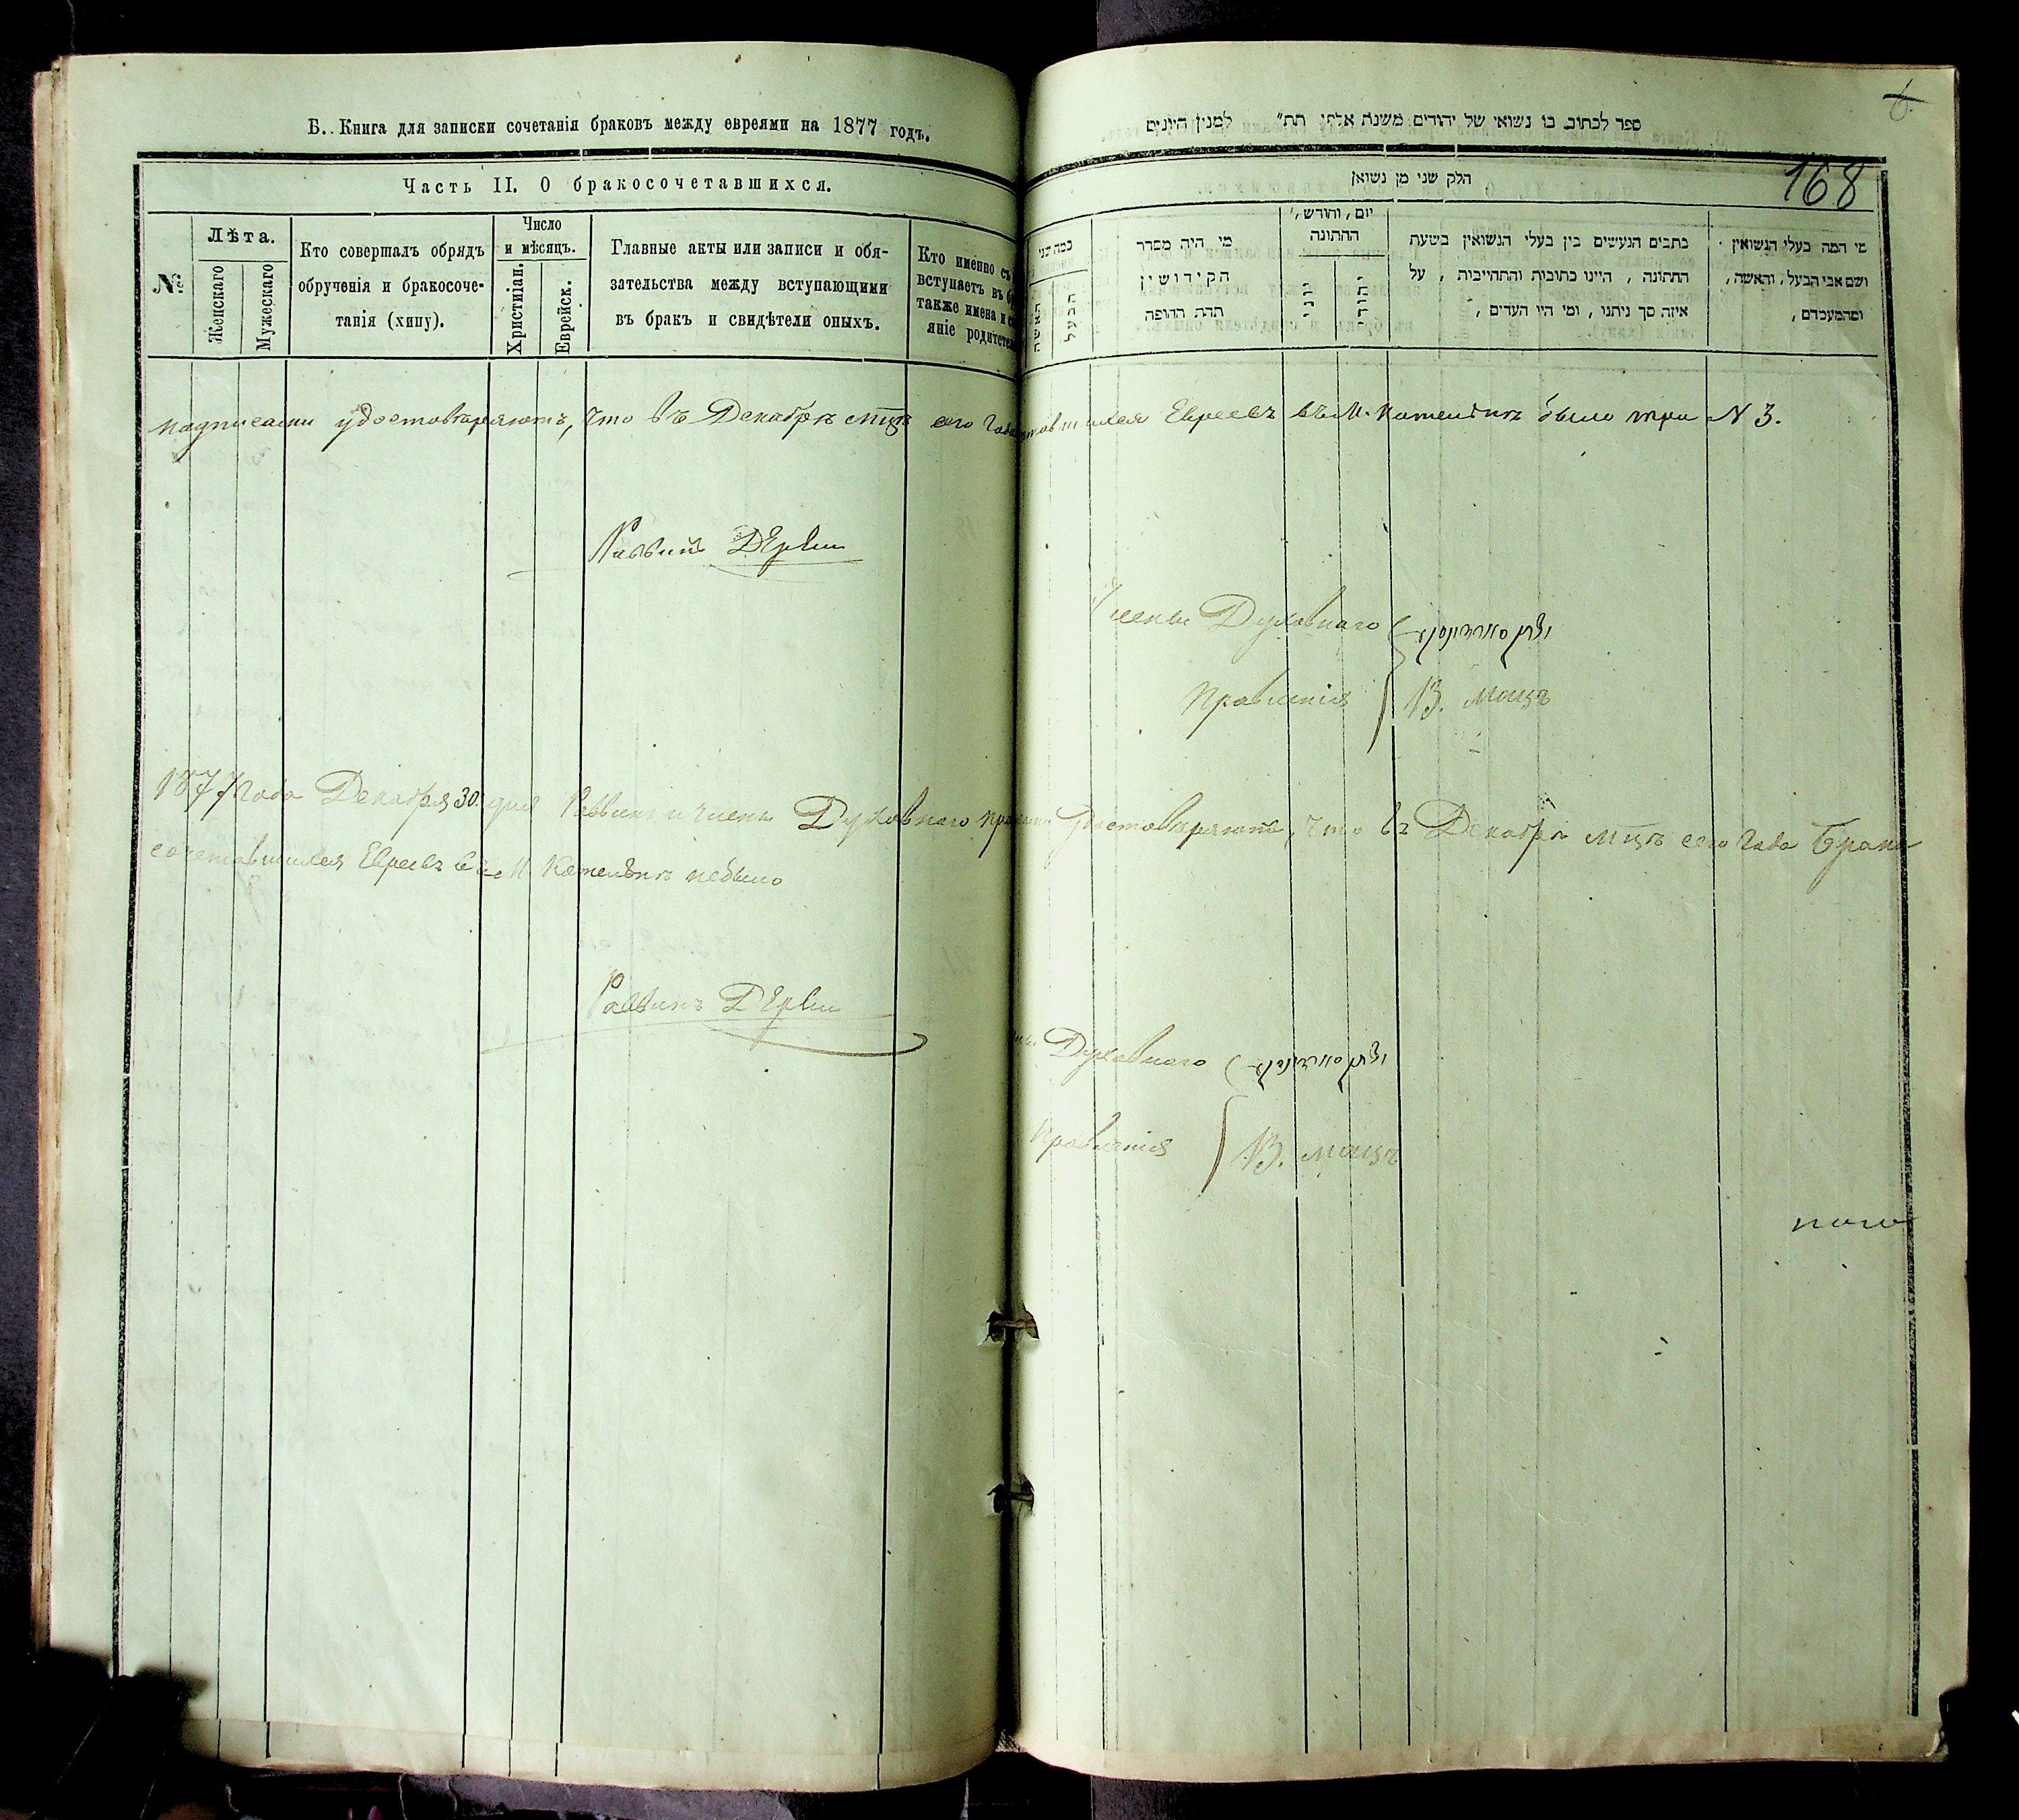 Б. Книга для записки сочетанія браковъ между евреями на 1877 годъ.
Часть II. О бракосочетавшихся.
№
Лѣта.
Женскаго
Мужескаго
Кто совершалъ обрядъ
обрученія и бракосоче-
танія (хипу).
Число
и мѣсяцъ.
Христіан.
Еврейск.
Главные акты или записи и обя-
зательства между вступающими
въ бракъ и свидѣтели оныхъ.
Кто именно съ
вступаетъ въ
также имена и
яніе
ספר לכתוב בו נשואי של יהודים משנת אלף תת״ למנין היונים
168
חלק שני מן נשואין
כמה שני
האשה
הבעל
מי היה מסדר
הקידושין
תחת החופה
יום, וחודש,
החתונה
יוני
יהודי
כתבים הנעשים בין בעלי הנשואין בשעת
החתונה, היינו כתובות והתחייבות, על
איזה סך ניתנו, ומי היו העדים,
מי המה בעלי הנשואין
ושם אבי הבעל, והאשה,
ומהמעמדם,
подписами удостовѣряютъ, что въ Декабрѣ мцѣ сего Года Евреевъ въ М. было три N 3.
Раввинъ
Члены Духовнаго
Правленія В. Мацъ
1877 Года Декабря 30 дня Раввинъ и члены Духовнаго удостовѣряютъ, что въ Декабрѣ мцѣ сего Года Брако
сочетавшихся Евреевъ въ М. небыло
Раввинъ
Духовнаго
Правленія В. Мацъ